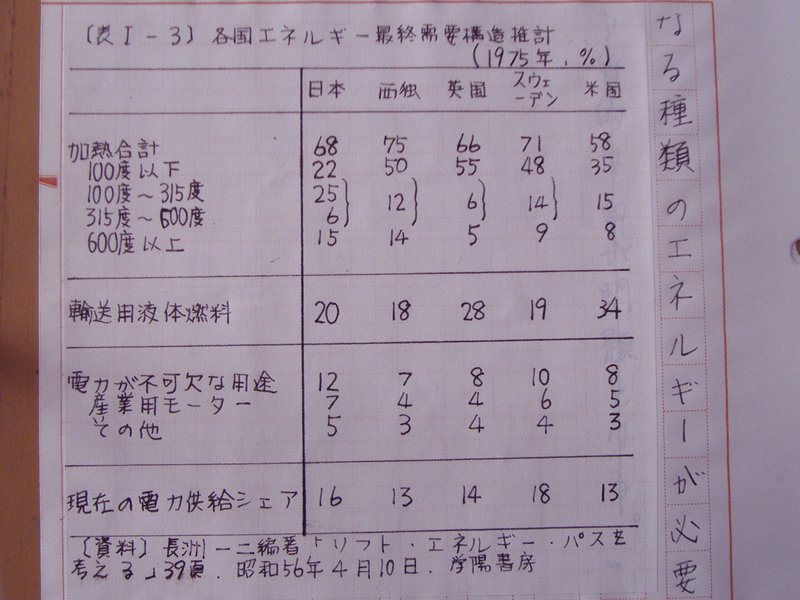 〔表Ⅰ－3〕各国エネルギー最終需要構造推計
(1975年, %)
日本 西独 英国 スウェーデン 米国
加熱合計 68 75 66 71 58
100度以下 22 50 55 48 35
100度～315度 25
315度～600度 6 } 12 } 6 } 14 } 15
600度以上 15 14 5 9 8
輸送用液体燃料 20 18 28 19 34
電力が不可欠な用途 12 7 8 10 8
産業用モーター 7 4 4 6 5
その他 5 3 4 4 3
現在の電力供給シェア 16 13 14 18 13
〔資料〕長洲一二編著「ソフト・エネルギー・パスを
考える」39頁. 昭和56年4月10日. 学陽書房
なる種類のエネルギーが必要